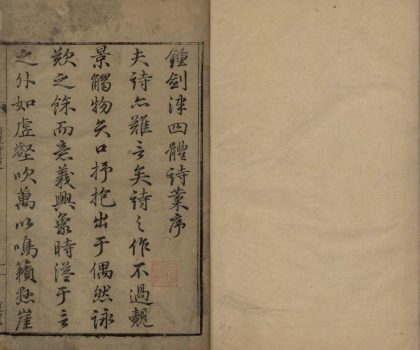 鍾劍津四體詩業序
夫詩亦難言矣詩之作不過覩
景觸物矢口抒抱出于偶然詠
歎之餘而意義興象時溢于言
之外如虛壑吹萬以鳴籟孤崖